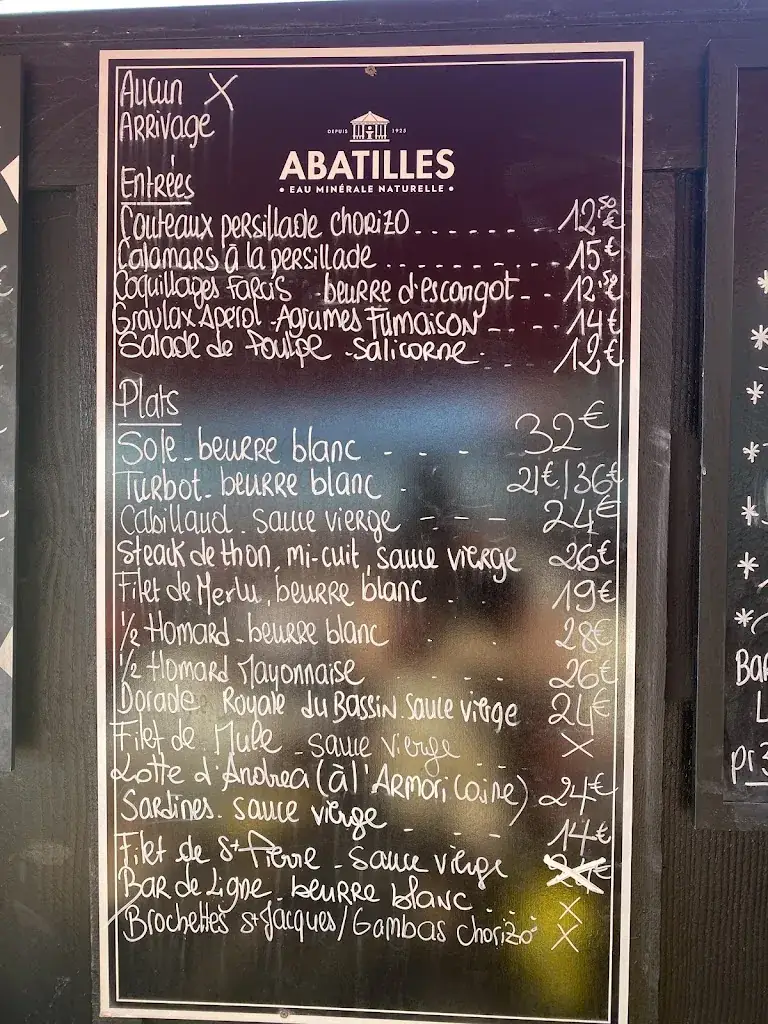 Aucun X
ARRIVAGE
DEPUIS 1925
ABATILLES
• EAU MINÉRALE NATURELLE •
Entrées
Couteaux persillade chorizo 12,50€
Calamars à la persillade 15€
Coquillages Farcis - beurre d'escargot 12,50
Gravlax Aperol - Agrumes Fumaison 14€
Salade de Poulpe - Salicorne 12€
Plats
Sole - beurre blanc 32€
Turbot - beurre blanc 21€/36€
Cabillaud - Sauce vierge 24€
Steack de thon, mi-cuit, sauce vierge 26€
Filet de Merlu, beurre blanc 19€
1/2 Homard - beurre blanc 28€
1/2 Homard Mayonnaise 26€
Dorade Royale du Bassin. Sauce vierge 24€
Filet de Mule - Sauce Vierge X
Lotte d'Andrea (à l'Armoricaine) 24€
Sardines. Sauce vierge 14€
Filet de St Pierre - Sauce Vierge
Bar de Ligne - beurre blanc X
Brochettes St Jacques/Gambas chorizo X